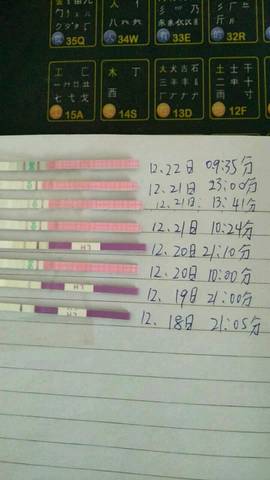 35Q 34W 33E 32R
工 匚 木 丁 大犬古石 土士干
七弋戈 西
15A 14S 13D 12F
12.22日 09:35分
12.21日 23:00分
12.21日: 13:41分
12.21日 10:24分
LH 12.20日 21:10分
12.20日 10:00分
LH 12.19日 21:00分
LH 12.18日 21:05分